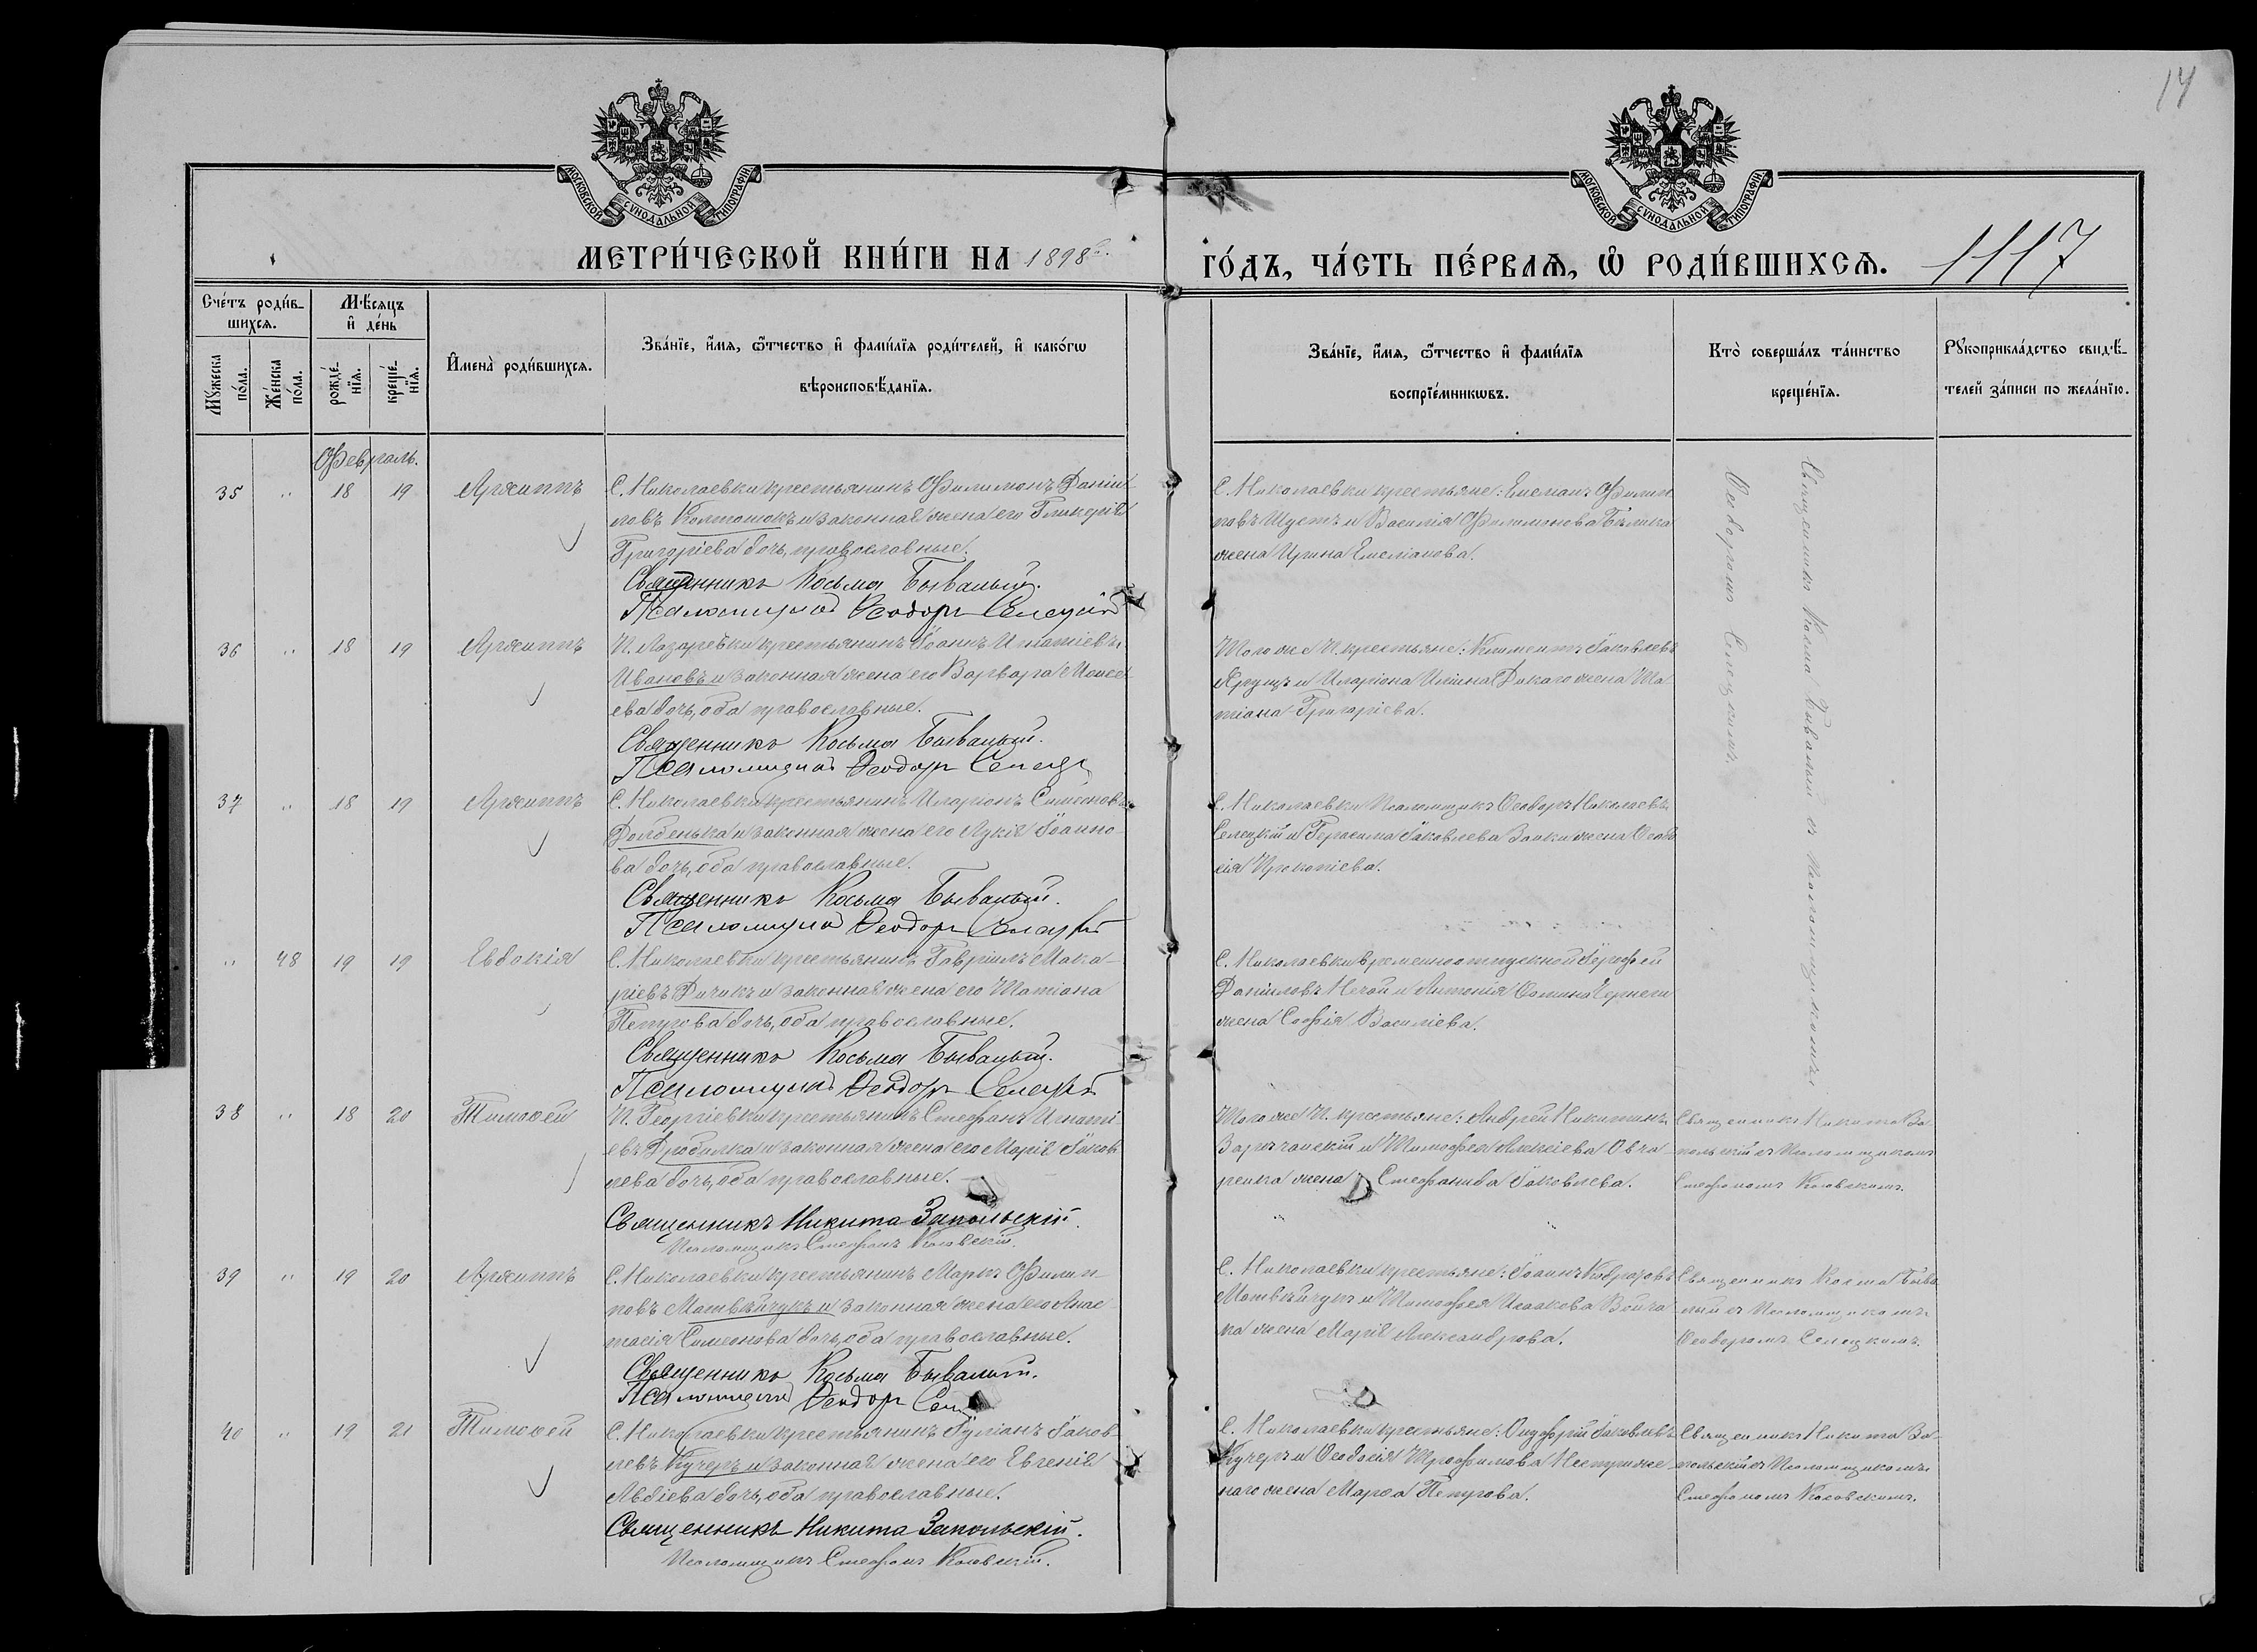 14
МОСКОВСКОЙ СѴНОДАЛЬНОЙ ТИПОГРАФІИ
МОСКОВСКОЙ СѴНОДАЛЬНОЙ ТИПОГРАФІИ
МЕТРИ́ЧЕСКОЙ КНИ́ГИ НА 1898 ГО́ДЪ, ЧА́СТЬ ПЕ́РВАѦ, Ѡ РОДИ́ВШИХСѦ. 1117
Сче́тъ роди́в-
шихсѧ.
Мꙋ́жеска по́ла.
Же́нска по́ла.
Мѣ́сяцъ
и҆ де́нь
рожде́-
нїѧ.
креще́-
нїѧ.
И҆мена̀ роди́вшихсѧ.
Зва́нїе, и҆́мѧ, ѻ҆́тчество и҆ фами́лїѧ роди́телей, и҆ како́гѡ
вѣроисповѣ́данїѧ.
Зва́нїе, и҆́мѧ, ѻ҆́тчество и҆ фами́лїѧ
воспрїе́мникѡвъ.
Кто̀ соверша́лъ та́инство
креще́нїѧ.
Рꙋкоприкла́дство свидѣ́-
телей за́писи по жела́нїю.
Февраль.
35 " 18 19 Архиппъ
С. Николаевки крестьянинъ Филимонъ Даніи-
ловъ Колтонюкъ и законная жена его Гликерія
Григоріева дочь, православные.
Священникъ Косьма Бывалый.
Псаломщикъ Ѳеодоръ Селецкій
С. Николаевки крестьяне: Емеліанъ Филип-
повъ Шустъ и Василія Филимонова Бѣлика
жена Ирина Емеліанова.
Священникъ Косма Бывалый съ псаломщикомъ
Ѳеодоромъ Селецкимъ.
36 " 18 19 Архиппъ
П. Лазаревки крестьянинъ Іоаннъ Игнатіевъ
Ивановъ и законная жена его Варвара Моисе-
ева дочь, оба православные.
Священникъ Косьма Бывалый.
Псаломщикъ Ѳеодоръ Селец
Того же П. крестьяне: Климентъ Іаковлевъ
и Иларіона Дикаго жена Та-
тіана Григоріева.
37 " 18 19 Архиппъ
С. Николаевки крестьянинъ Иларіонъ Симеоновъ
Долбенька и законная жена его Лукія Іоанно-
ва дочь, оба православные.
Священникъ Косьма Бывалый.
Псаломщикъ Ѳеодоръ Селецкій
С. Николаевки Псаломщикъ Ѳеодоръ Николаевъ
Селецкій и Герасима Іаковлева Заики жена Ѳеодо-
сія Прокопіева.
" 48 19 19 Евдокія
С. Николаевки крестьянинъ Гавріилъ Мака-
ріевъ Дичикъ и законная жена его Татіана
Петрова дочь, оба православные.
Священникъ Косьма Бывалый.
Псаломщикъ Ѳеодоръ Селецкій
С. Николаевки временноотпускной Іероѳей
Даніиловъ Нечай и Антонія Ѳомина Чернеги
жена Софія Василіева.
38 " 18 20 Тимоѳей
П. Георгіевки крестьянинъ Стефанъ Игнаті-
евъ Дробилка и законная жена его Марія Іаков-
лева дочь, оба православные.
Священникъ Никита Запольскій.
Псаломщикъ Стефанъ Косовскій.
Того же П. крестьяне: Андрей Никитинъ
и Тимоѳея Алексіева Овча-
ренка жена Стефанида Іаковлева.
Священникъ Никита За-
польскій съ Псаломщикомъ
Стефаномъ Косовскимъ.
39 " 19 20 Архиппъ
С. Николаевки крестьянинъ Маркъ Филип-
повъ Матвѣйчукъ и законная жена его Анас-
тасія Симеонова дочь, оба православные.
Священникъ Косьма Бывалый.
Псаломщикъ Ѳеодоръ Сел
С. Николаевки крестьяне: Іоаннъ Кодратовъ
Матвѣйчукъ и Тимоѳея Исаакова Войта-
ка жена Марія Александрова.
Священникъ Косма Быва-
лый съ Псаломщикомъ
Ѳеодоромъ Селецкимъ.
40 " 19 21 Тимоѳей
С. Николаевки крестьянинъ Іуліанъ Іаков-
левъ Кучеръ и законная жена его Евгенія
Авдіева дочь, оба православные.
Священникъ Никита Запольскій.
Псаломщикъ Стефанъ Косовскій.
С. Николаевки крестьяне: Онуфрій Іаковлевъ
Кучеръ и Ѳеодосія Трофимова
жена Марѳа Петрова.
Священникъ Никита За-
польскій съ Псаломщикомъ
Стефаномъ Косовскимъ.